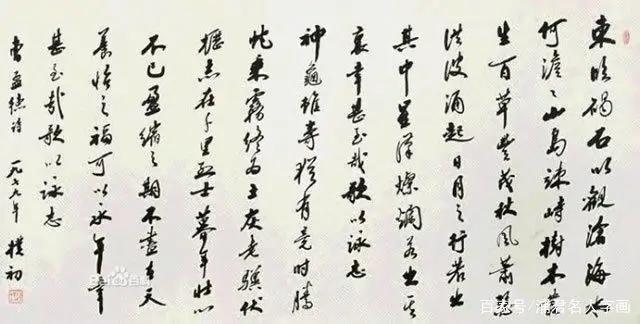 東臨碣石以觀滄海水
何澹〻山島竦峙樹木叢
生百草豐茂秋風蕭瑟
洪波涌起日月之行若出
其中星漢燦爛若出其
裏幸甚至哉歌以詠志
神龜雖壽猶有竟時騰
蛇乘霧終為土灰老驥伏
櫪志在千里烈士暮年壯心
不已盈縮之期不盡在天
養怡之福可以永年幸
甚至哉歌以詠志
曹孟德詩 一九七年 樸初
Bai百科
百家号/蒲君名人字画